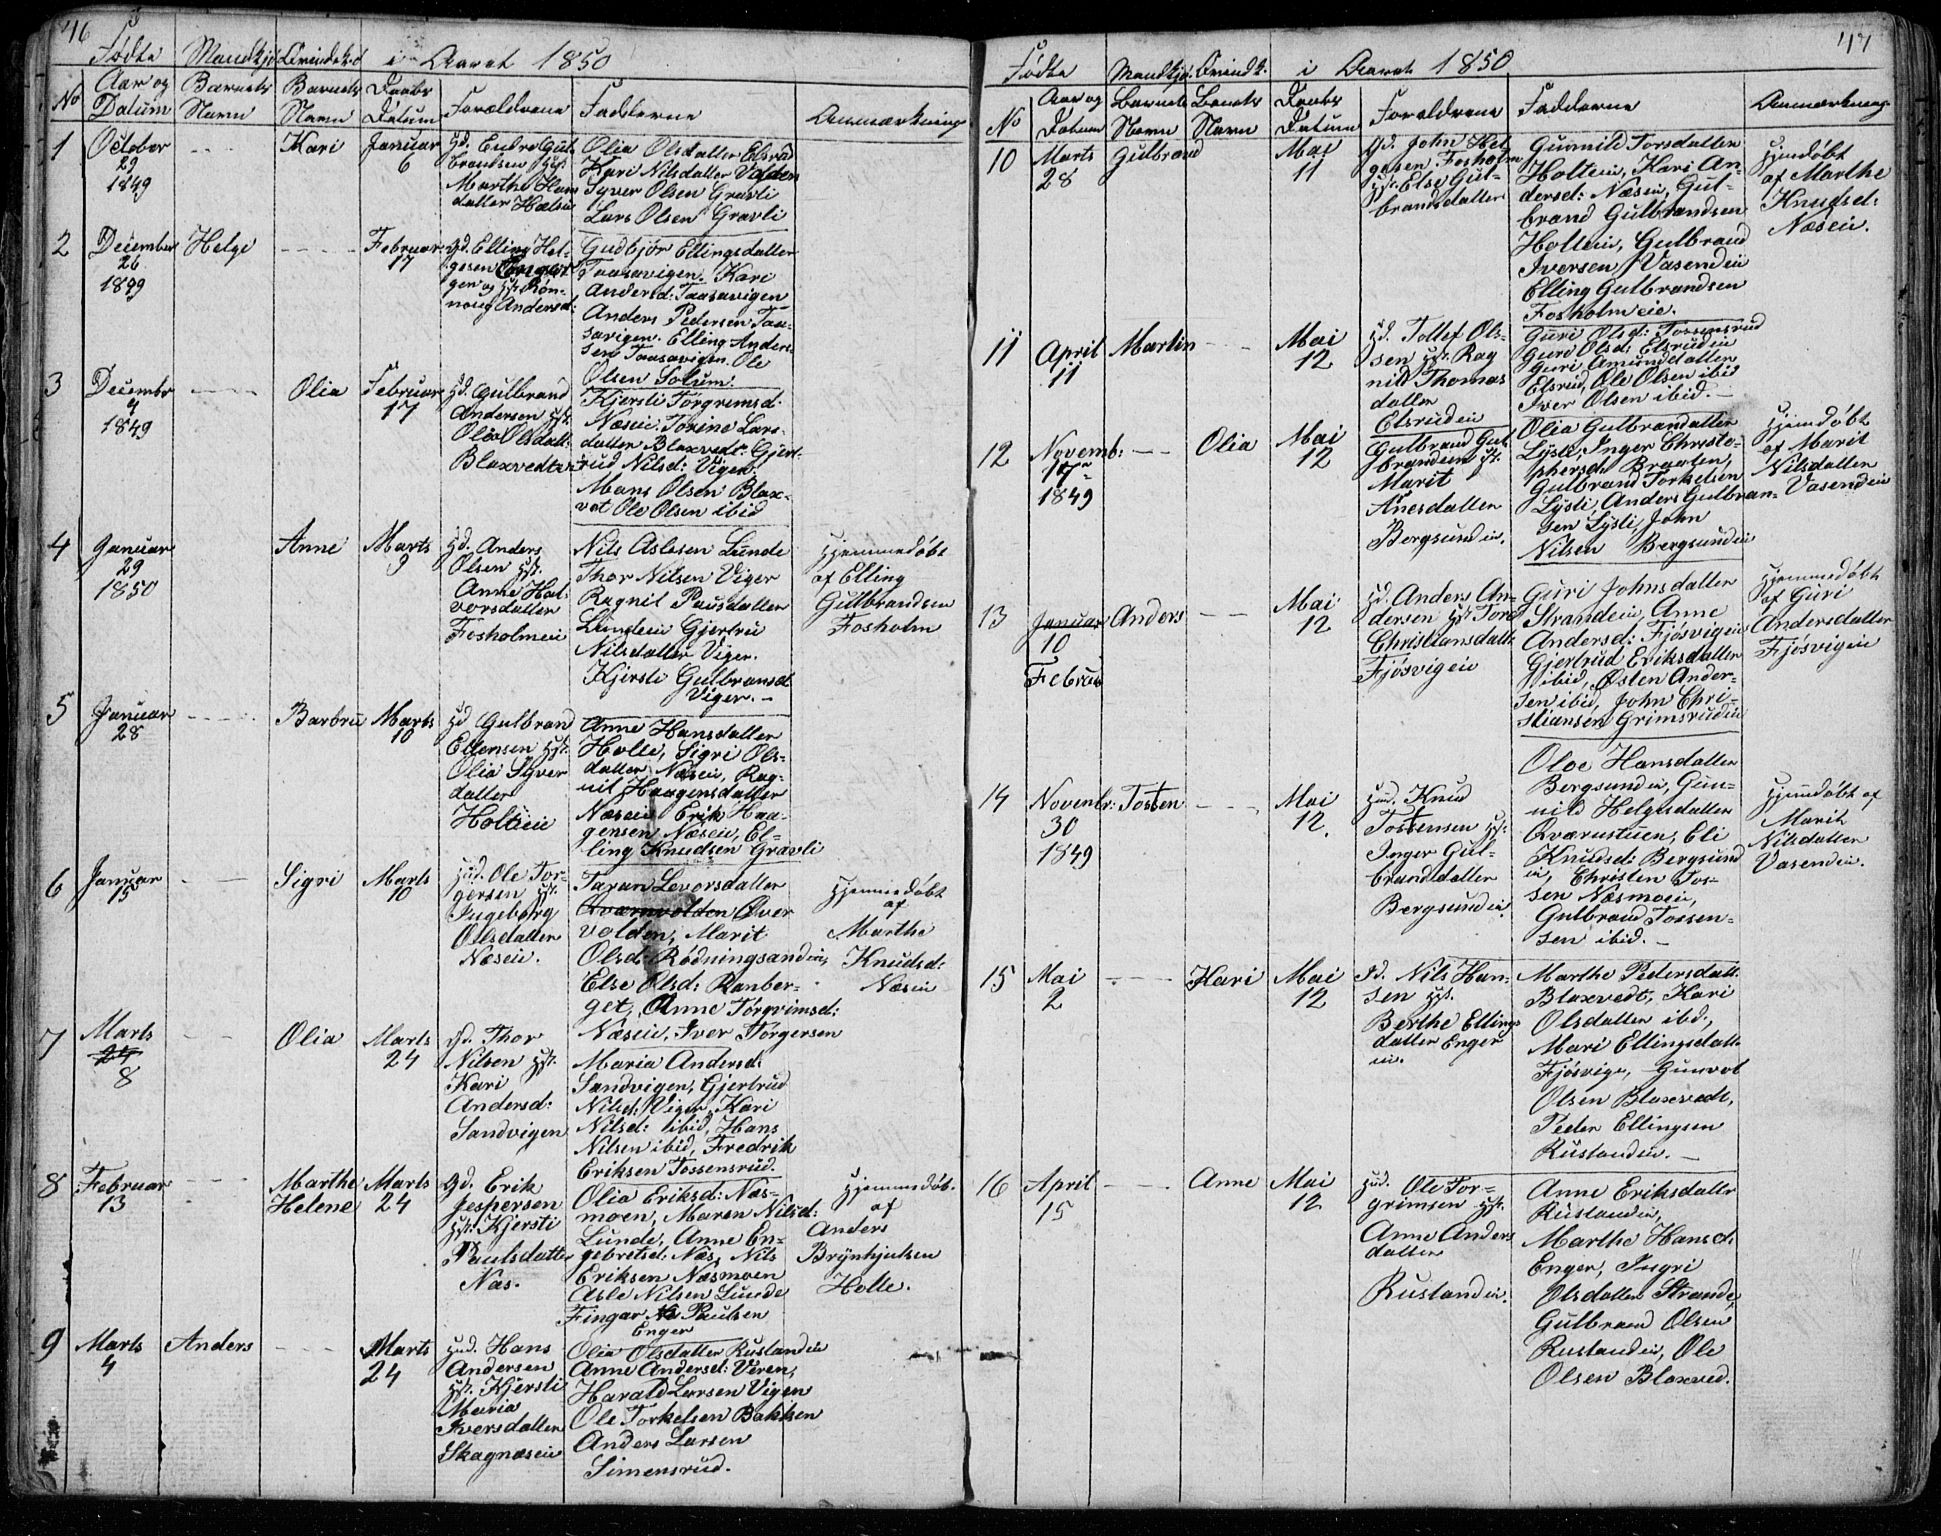 46
Födte Mandkjö Qvindek: i Aaret 1850
No Aar og Datum Barnets Navn Barnets Navn Daabs Datum Forældrene Fadderne Anmærkning
1 October 29 1849 - - - Kari Januar 6
Marthe
Olia Olsdatter Elsrud
Kari Nilsdatter
Syver Olsen Gravli
Lars Olsen Gravli
2 December 26 1849 Helge - - - Februar 17
Elling Hel-
gesen
Andersd:
Gudbjör Ellingsdatter
Taasavigen. Kari
Andersd: Taasavigen
Anders Pedersen Taa-
savigen. Elling Anders-
sen Taasavigen. Ole
Olsen Solum.
3 Decembr 4 1849 - - - Olia Februar 17
Gulbrand
Andersen
Olea Olsdatt
Blaxvedt
Kjersti Torgrimsd.
Næseie. Torine Lars-
datter Blaxvedt. Gjert-
rud Nilsd: Vigen.
Mons Olsen Blax-
vet Ole Olsen ibid
4 Januar 29 1850 Anne Marts 9
Anders
Olsen
Anne Hal-
vorsdatter
Fosholmeie
Nils Aslesen Lunde
Thor Nilsen Viger
Ragnil Paulsdatter
Lundeie Gjertru
Nilsdatter Viger.
Kjersti Gulbransd
Viger. -
Hjemmedöbt
af Elling
Gulbrandsen
Fosholm
5 Januar 28 - - - Barbru Marts 10
Gulbran
Ellensen
Olia Syver
datter
Holteie
Anne Hansdatter
Holte, Sigri Ols-
datter Næseie, Rag-
nil Haagensdatter
Næseie Erik Haa-
gensen Næseie, El-
ling Knudsen Gravli
6 Januar 15 - - Sigri Marts 10
Ole Tor-
gersen
Ingeborg
Olsdatter
Næseie.
Taran Levorsdatter
Qværnvolden Qver
volden, Marit
Olsd: Rödningsandeie,
Else Olsd: Ranber-
get, Anne Torgrimsd:
Næseie, Iver Torgersen
Hjemmedöbt
af
Marthe
Knudsd:
Næseie
7 Marts 24 8 - - Olia Marts 24
Thor
Nilsen
Kari
Andersd:
Sandvigen
Maria Andersd:
Sandvigen, Gjertrud
Nilsd: Viger, Kari
Nilsd: ibid, Hans
Nilsen ibid, Fredrik
Eriksen Tossensrud.
8 Februar 13 - - - Marthe Helene Marts 24
Erik
Jespersen
Kjersti
Paulsdatter
Næs.
Olia Eriksd: Næs-
moen, Maren Nilsd:
Lunde, Anne En-
gebretsd: Næs, Nils
Eriksen Næsmoen
Asle Nilsen Lunde
Fingar Paulsen
Enger
Hjemmedöb.
af
Anders
Brynhjulsen
Holte.
9 Marts 4 Anders - - - Marts 24
Hans
Andersen
Kjersti
Maria
Iversdatter
Skagnæseie
Olia Olsdatter Rustandeie
Anne Andersd: Veren,
Harald Larsen Vigen
Ole Torkelsen Bakken
Anders Larsen
Simensrud.
47
Födte Mandkjø. Qvindk. i Aaret 1850
No Aar og Datum Barnets Navn Barnets Navn Daabs Datum Forældrene Fadderne Anmærkning
10 Marts 28 Gulbrand Mai 11
John Hel-
gesen Fosholm
Else Gul-
brandsdatter
Gunnild Torsdatter
Holteie, Kari An-
dersd: Næseie, Gul-
brand Gulbrandsen
Holteie, Gulbrand
Iversen Vasendeie
Elling Gulbrandsen
Fosholmeie.
Hjemdöbt
af Marthe
Knudsd:
Næseie.
11 April 11 Martin - - Mai 12
Tollef Ols-
sen Rag
nild Thomas
datter
Elsrudeie
Guri Olsd: Tossensrud
Guri Olsd: Elsrudeie
Guri Amundsdatter
Elsrud, Ole Olsen ibid
Iver Olsen ibid. -
12 Novemb: 17 1849 - - Olia Mai 12
Gulbrand Gul-
brandsen
Marit
Anesdatter
Bergsundeie.
Olia Gulbrandsdatter
Lysli, Inger Christo-
phersd: Braaten,
Gulbrand Torkelsen
Lysli, Anders Gulbran-
sen Lysli, John
Nilsen Bergsundeie
Hjemdöbt
af Marit
Nilsdatter
Vasendeie
13 Januar 10 Februar Anders - - Mai 12
Anders An-
dersen Tore
Christiansdatt
Fjösvigeie
Guri Johnsdatter
Strandeie, Anne
Andersd: Fjösvigeie
Gjertrud Eriksdatter
ibid, Østen Ander-
sen ibid, John Chri-
stiansen Grimsrudeie
Hjemmedöbt
af Guri
Andersdatter
Fjösvigeie
14 Novembr: 30 1849 Tosten - - - Mai 12.
Knud
Tostensen
Inger Gul-
brandsdatter
Bergsundeie.
Oloe Hansdatter
Bergsundeie, Gun-
nild Helgesdatter
Qværnstuen, Eli
Knudsd: Bergsund
eie, Christen Tos-
sen Næsmoeie,
Gulbrand Tossen-
sen ibid. -
Hjemdöbt af
Marit
Nilsdatter
Vasendeie.
15 Mai 2 - - - Kari Mai 12
Nils Han-
sen
Berthe Ellings
datter Enger
eie.
Marthe Pedersdatt.
Blaxvedt, Kari
Olsdatter ibd.,
Mari Ellingsdatt.
Fjösvige, Gunvol
Olsen Blaxvedt,
Peder Ellingsen
Rustandeie. -
16 April 15 - - - Anne Mai 12
Ole Tor-
grimsen
Anne Anders
datter
Rustandeie.
Anne Eriksdatter
Rustandeie,
Marthe Hansd:
Enger, Ingri
Olsdatter Strande,
Gulbrand Olsen
Rustandeie, Ole
Olsen Blaxved.